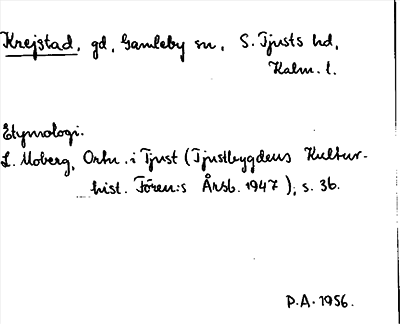 Krejstad, gd, Gamleby sn, S. Tjusts hd,
Kalm. l.
Etymologi.
L. Moberg, Ortn. i Tjust (Tjustbygdens Kultur-
hist. Fören:s Årsb. 1947), s. 36.
P.A. 1956.